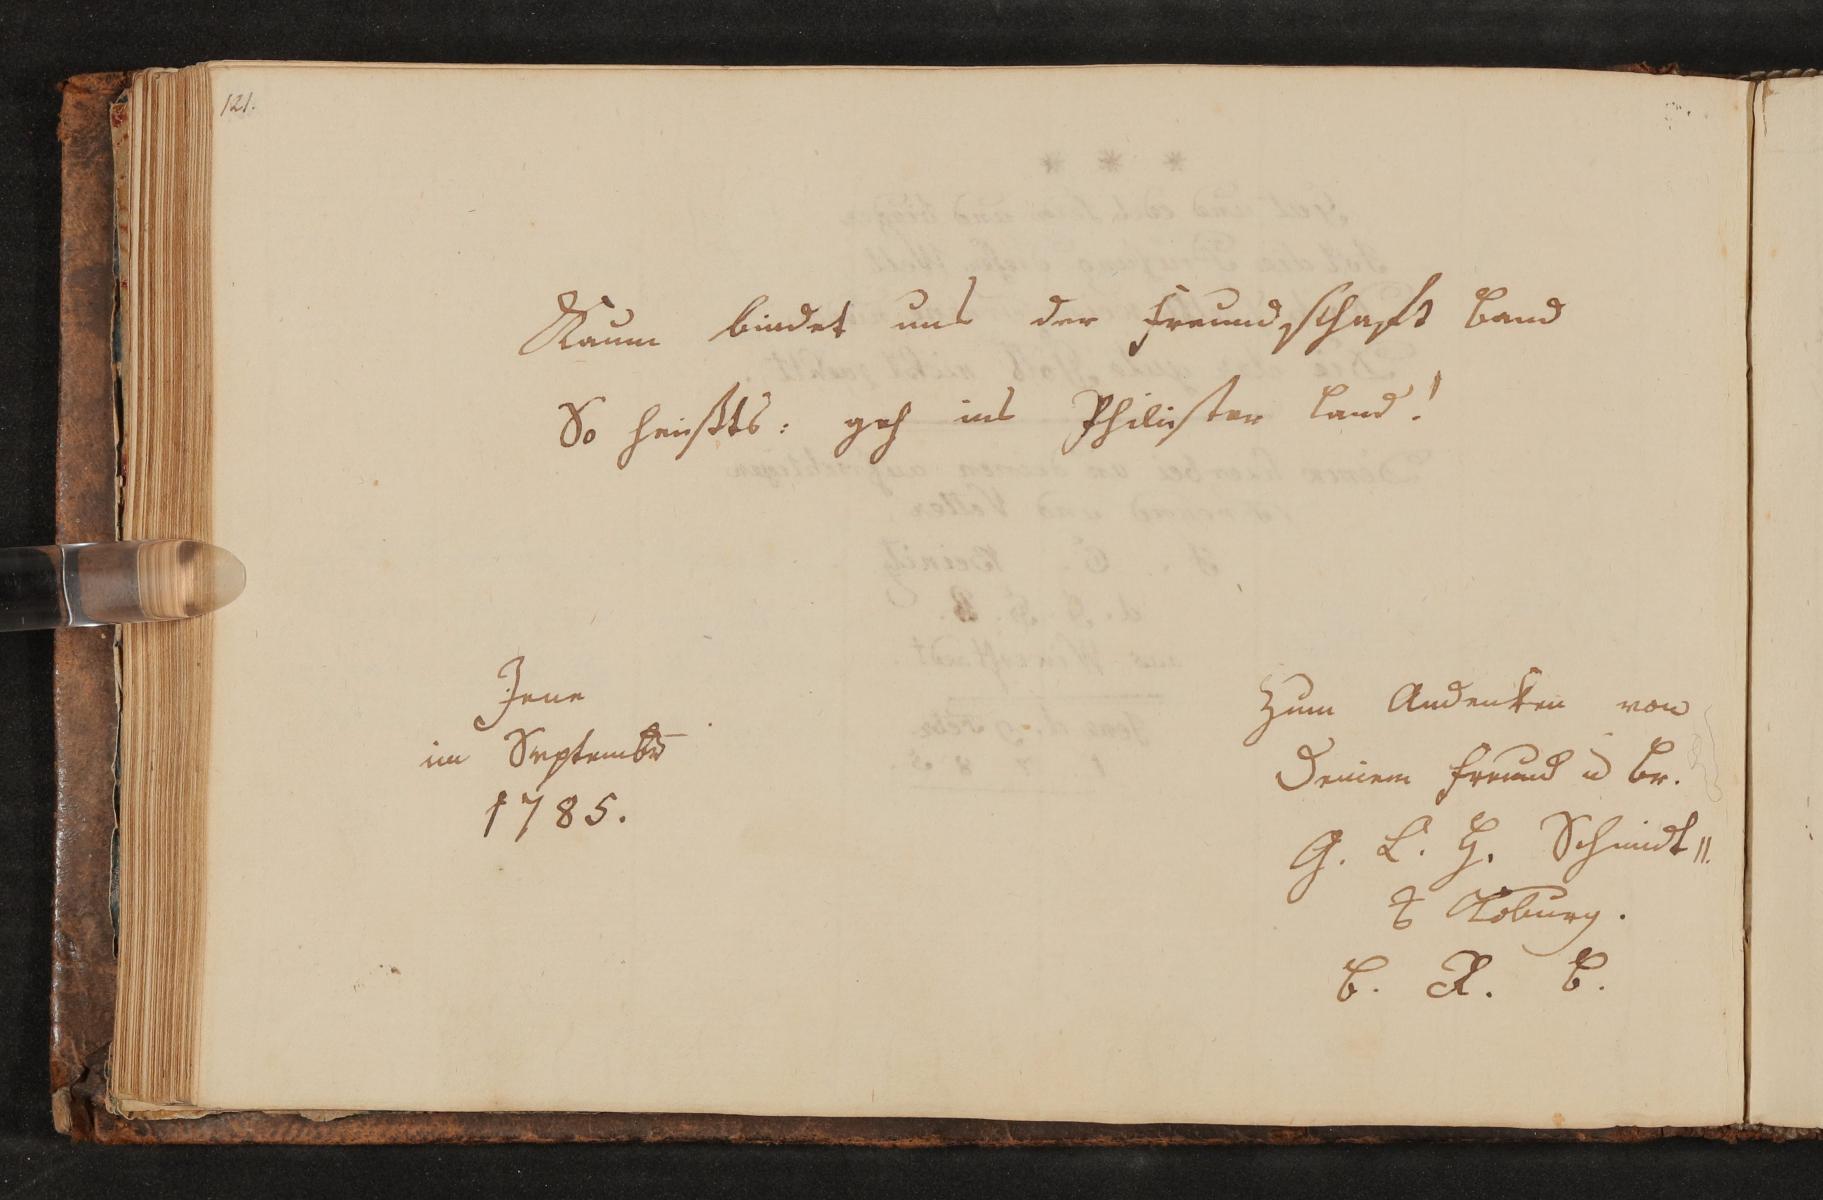 121.
Kaum bindet uns der Freundschaft Band
So heißts: geh ins Philister Land!
Jena
im Septembr
1785.
Zum Andenken von
Deinem Freund u Br.
G. L. H. Schmidt II.
Coburg.